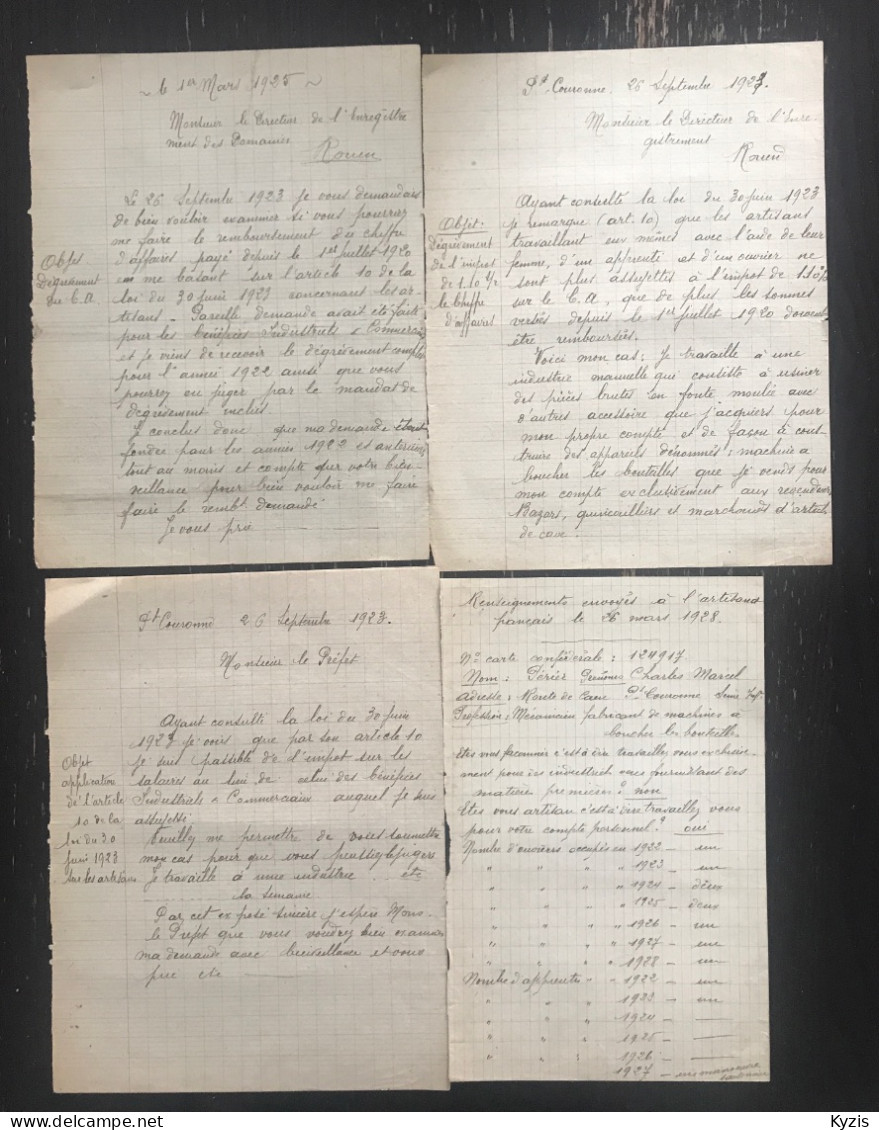 ~ le 1er Mars 1925 ~
Monsieur le Directeur de l'Enregistre
ment des Domaines
Rouen
Objet
Dégrèvement
du C.A.
Le 26 Septembre 1923 je vous demandais
de bien vouloir examiner si vous pourrez
me faire le remboursement du chiffre
d'affaires payé depuis le 1er juillet 1920
en me basant sur l'article 10 de la
loi du 30 juin 1923 concernant les ar-
tisans. Pareille demande avait été faite
pour les bénéfices Industriels & Commerciaux
et je viens de recevoir le dégrèvement complet
pour l'année 1922 ainsi que vous
pourrez en juger par le mandat de
dégrèvement inclus.
Je conclus donc que ma demande était
fondée pour les année 1922 et antérieures
tout au moins et compte que votre bien-
veillance pour bien vouloir me faire
faire le rembt demandé
Je vous prie
Pt Couronne, 26 Septembre 1923.
Monsieur le Directeur de l'Enre-
gistrement
Rouen
Objet.
Dégrèvement
de l'impot
de 1.10 %
le Chiffre
d'affaires
Ayant consulté la loi du 30 juin 1923
je remarque (art. 10) que les artisans
travaillant eux mêmes avec l'aide de leur
femme, d'un apprenti et d'un ouvrier ne
sont plus assujettis à l'impot de 1.10%
sur le C.A, que de plus les sommes
versées depuis le 1er juillet 1920 doivent
être remboursées.
Voici mon cas: Je travaille à une
industrie manuelle qui consiste à usiner
des pièces brutes en fonte moulée avec
d'autres accessoire que j'acquiers pour
mon propre compte et de façon à cons-
truire des appareils dénommés: machine à
boucher les bouteilles que je vends pour
mon compte exclusivement aux revendeurs
Bazars, quincailliers et marchands d'articles
de cave.
Pt Couronne 26 Septembre 1923.
Monsieur le Préfet
Objet
application
de l'article
10 de la
loi du 30
juin 1923
sur les artisans
Ayant consulté la loi du 30 juin
1923 je vois que par son article 10
je suis passible de l'impot sur les
salaires au lieu de celui des bénéfices
Industriels & Commerciaux auquel je suis
assujetti.
Veuillez me permettre de vous soumettre
mon cas pour que vous puissiez le juger
Je travaille à une industrie . . etc
la semaine
Par cet exposé sincère j'espère Mons.
le Préfet que vous voudrez bien examiner
ma demande avec bienveillance et vous
prie etc
Renseignements envoyés à l'artisanat
français le 26 mars 1928.
No carte confédérale : 124917
Nom : Périer Prénoms Charles Marcel
adresse : Route de Caen Pt Couronne Seine Infre
Profession : Mécanicien fabricant de machines à
boucher les bouteilles
Etes vous façonnier c'est à dire travaillez vous exclusive-
ment pour des industriels vous fournissant des
matières premières? non
Etes vous artisan c'est à dire travaillez vous
pour votre compte personnel? oui
Nombre d'ouvriers occupés en 1922 - un
" " " " 1923 - un
" " " " 1924 - deux
" " " " 1925 - deux
" " " " 1926 - un
" " " " 1927 - un
" " " " 1928 - un
Nombre d'apprentis " " 1922 - un
" " " 1923 - un
" " " 1924 —
" " " 1925 —
" " 1926 —
1927 -
Kyzis